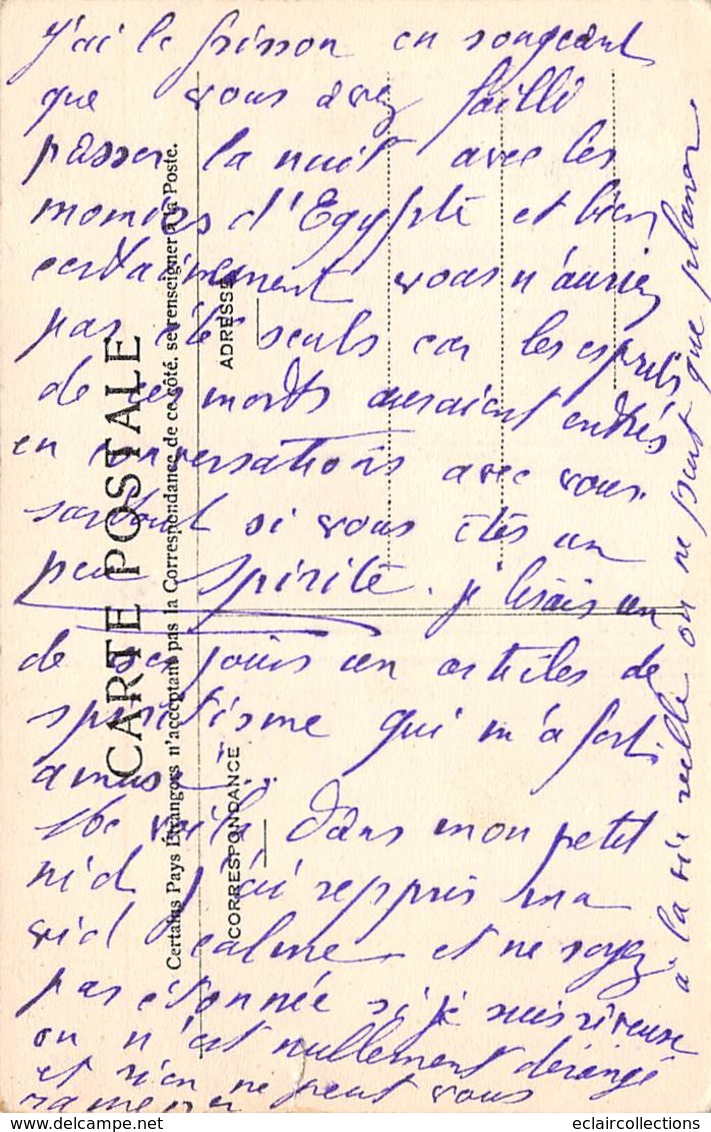 J'ai le frisson en songeant
que vous avez failli
passer la nuit avec les
momies d'Egypte et bien
certainement vous n'auriez
pas été seuls car les esprits
de ces morts auraient entrés
en conversations avec vous
surtout si vous êtes un
peu spirite. je lisais un
de ses jours un articles de
spiritisme qui m'a fort
amusé...
Me voilà dans mon petit
nid j'ai reppris ma
vid calme et ne soyez
pas étonnée si je suis rêveuse
on n'est nullement dérangé
et rien ne peut vous
ramener
à la vie réelle on ne peut que planer
CARTE POSTALE
Certains Pays Étrangers n'acceptant pas la Correspondance de ce côté, se renseigner à la Poste.
ADRESSE
CORRESPONDANCE
eclaircollections.com